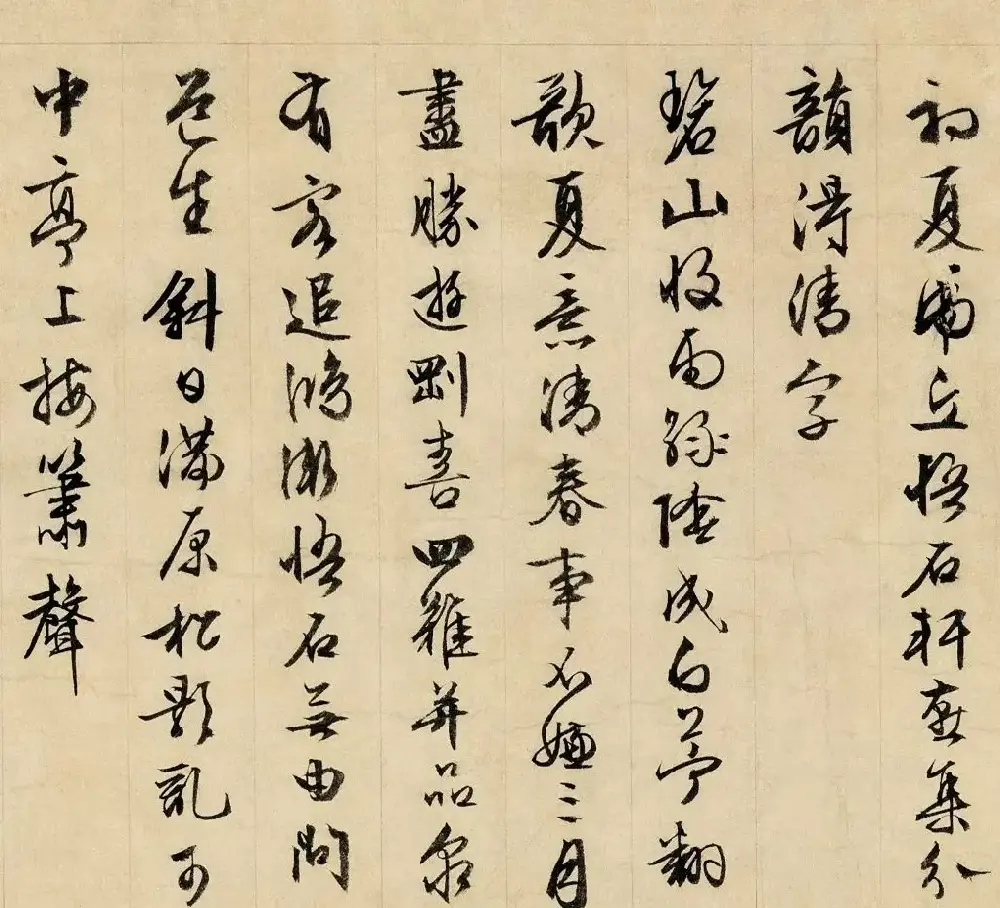 初夏虎丘悟石軒燕集分
韻得清字
碧山收雨綠陰成白苧翻
歌夏意清春事不嫌三月
盡勝遊剛喜四難并品泉
有客追鴻漸悟石無由問
道生斜日滿原松影亂可
中亭上接簫聲